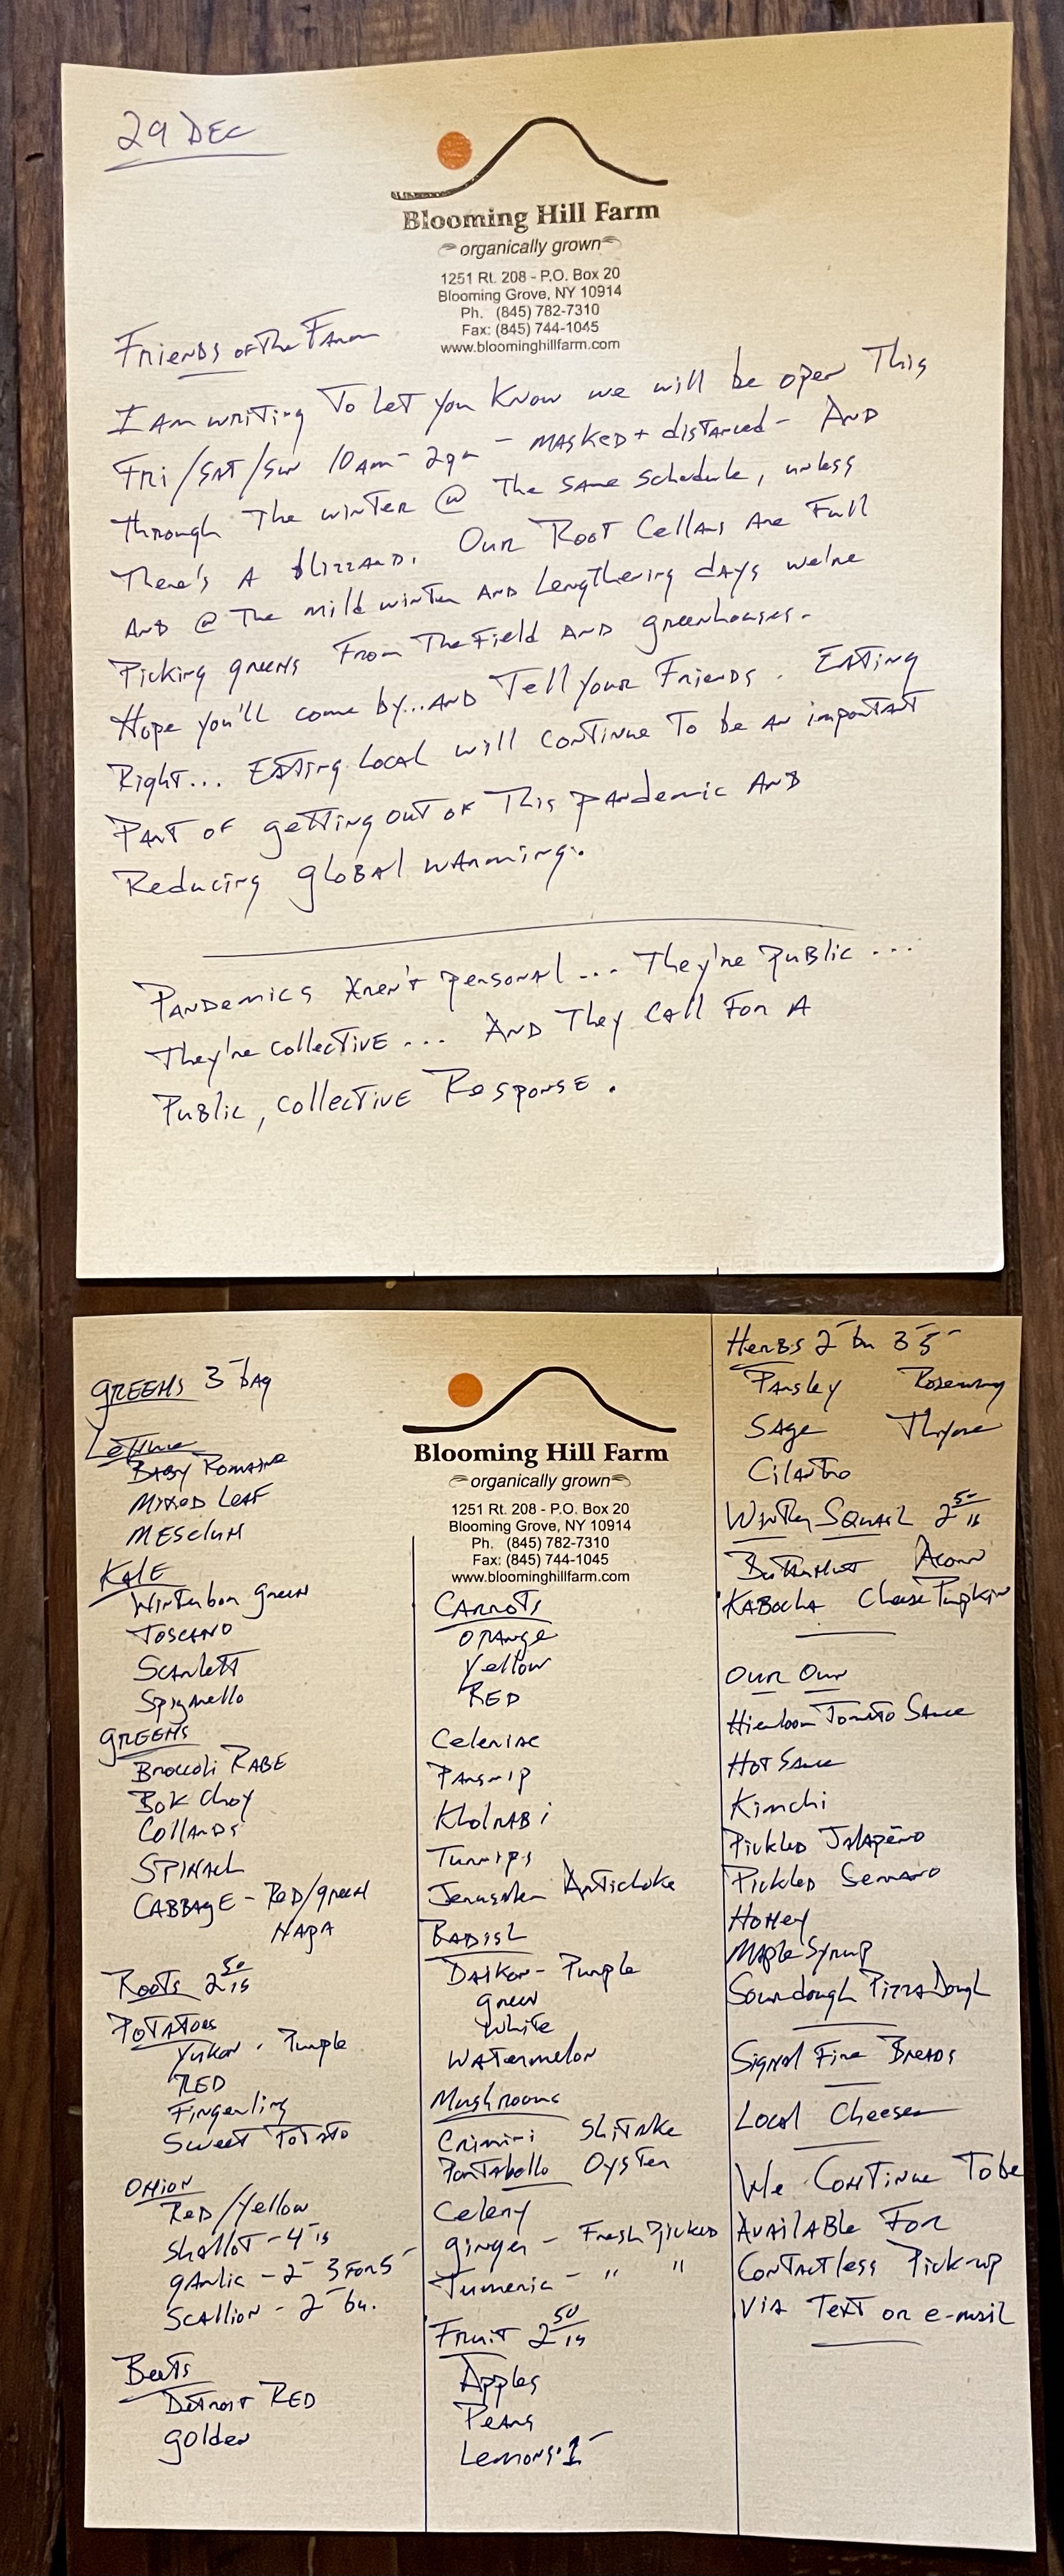 29 DEC
Blooming Hill Farm
organically grown
1251 Rt. 208 - P.O. Box 20
Blooming Grove, NY 10914
Ph. (845) 782-7310
Fax: (845) 744-1045
www.bloominghillfarm.com
Friends of The Farm
I Am writing To Let you Know we will be open This
Fri/SAT/Sun 10am - 2pm - MASKED + distanced - AND
Through The winTer @ The same schedule, unless
There's A blizzard. Our Root Cellars Are Full
AND @ The mild winTer AND Lengthening days we're
Picking greens From The Field AND greenhouses.
Hope you'll come by...AND Tell your Friends. Eating
Right... Eating Local will continue To be An important
Part of getting out of This pandemic AND
Reducing global warming.
Pandemics Aren't personal ... They're public ...
They're collective ... And They call For A
Public, collective Response.
GREENS 3- bag
Lettuce
Baby Romaine
Mixed Leaf
Mesclun
Kale
Winterbor green
Toscano
Scarlett
Spigarello
GREENS
Broccoli Rabe
Bok Choy
Collards
Spinach
Cabbage - Red/green
Napa
Roots 2 50/lb
Potatoes
Yukon. Purple
RED
Fingerling
Sweet Potato
Onion
Red/Yellow
Shallot - 4- lb
garlic - 2- 3 for 5-
Scallion - 2- bu.
Beets
Detroit RED
golden
Blooming Hill Farm
organically grown
1251 Rt. 208 - P.O. Box 20
Blooming Grove, NY 10914
Ph. (845) 782-7310
Fax: (845) 744-1045
www.bloominghillfarm.com
Carrots
Orange
Yellow
RED
Celeriac
Parsnip
Kholrabi
Turnips
Jerusalem Artichoke
Radish
Daikon - Purple
green
white
Watermelon
Mushrooms
Crimini Shitake
Portabello Oyster
Celery
ginger - Fresh Picked
Tumeric - " "
Fruit 2 50/lb
Apples
Pears
Lemons. 1-
Herbs 2- bu 3 5-
Parsley Rosemary
Sage Thyme
Cilantro
Winter Squash 2 50/lb
Butternut Acorn
Kabocha Cheese Pumpkin
Our Own
Hierloom Tomato Sauce
Hot Sauce
Kimchi
Pickled Jalapeño
Pickled Serrano
Honey
Maple Syrup
Sourdough Pizza Dough
Signal Fire Breads
Local Cheeses
We Continue To be
Available For
Contactless Pick-up
Via Text or e-mail